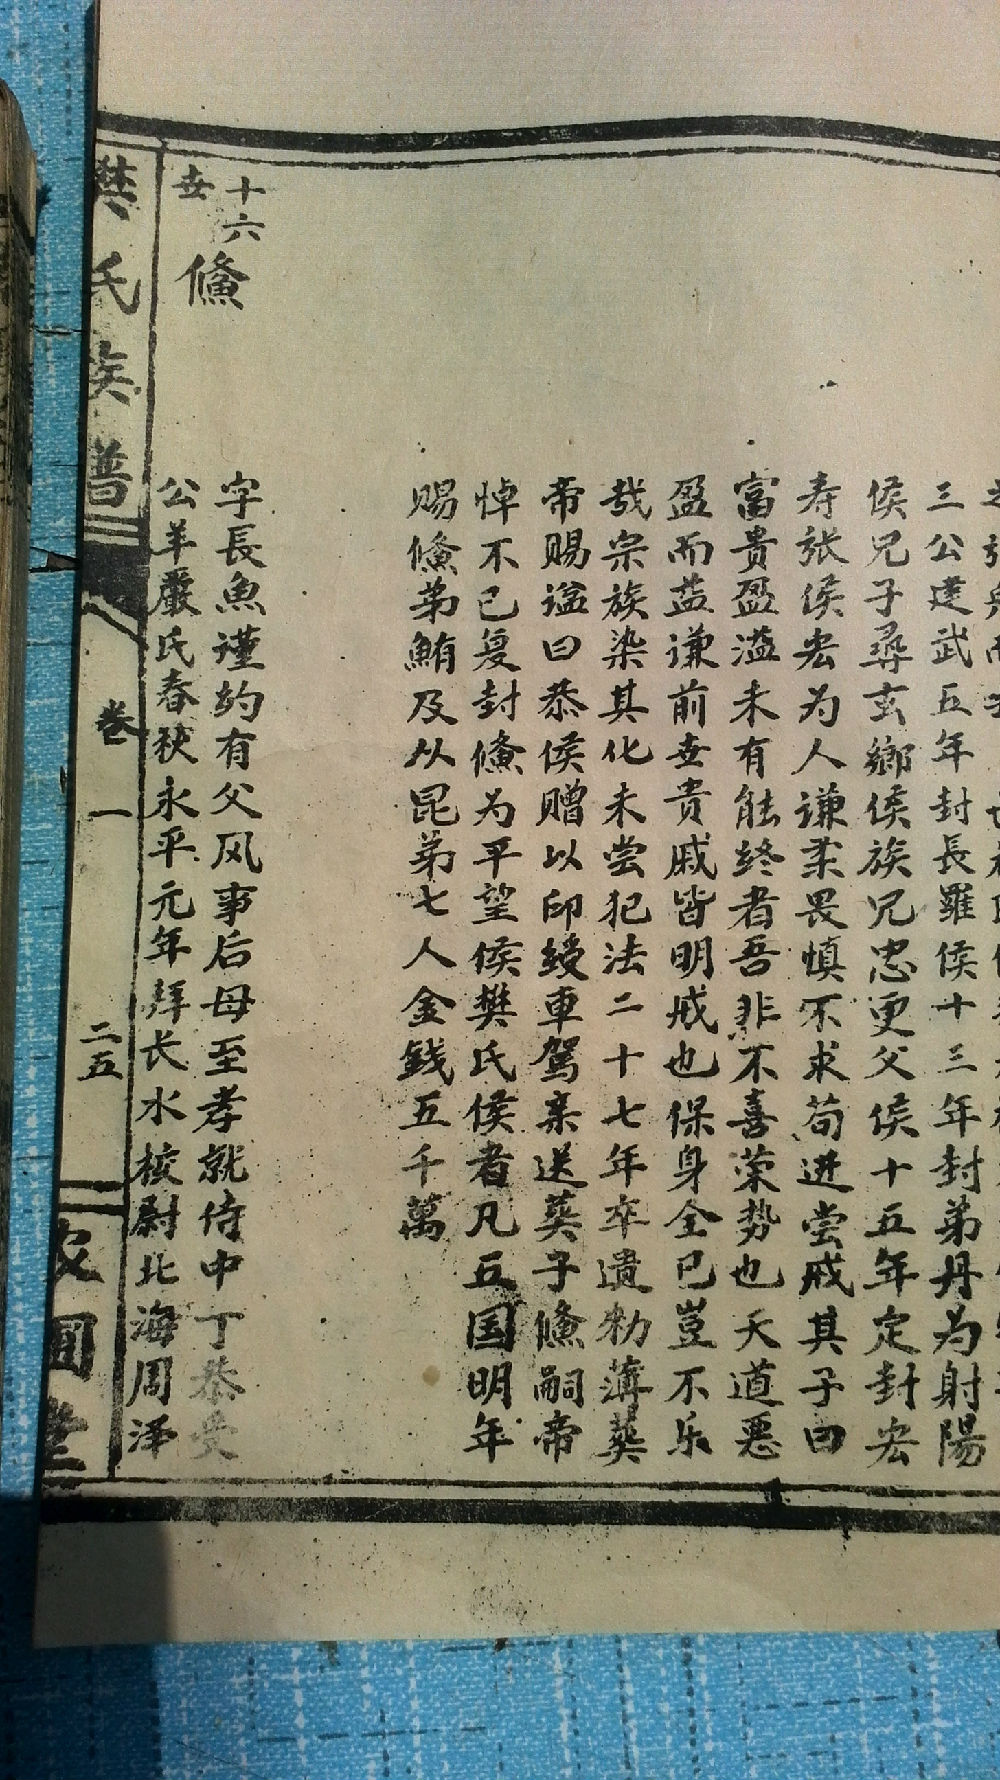 三公建武五年封長羅侯十三年封弟丹为射陽
侯兄子尋玄鄉侯族兄忠更父侯十五年定封宏
寿张侯宏为人谦柔畏慎不求苟进尝戒其子曰
富贵盈溢未有能终者吾非不喜荣势也天道恶
盈而益谦前世贵戚皆明戒也保身全已豈不乐
哉宗族染其化未尝犯法二十七年卒遺勅薄葵
帝赐谥曰恭侯赠以印绶車驾亲送葵子鯈嗣帝
悼不已复封鯈为平望侯樊氏侯者凡五国明年
赐鯈弟鮪及从昆弟七人金錢五千萬
十六
世
鯈
字長魚谨约有父风事后母至孝就侍中丁恭受
公羊嚴氏春秋永平元年拜长水校尉北海周泽
樊氏族譜
卷一
二五